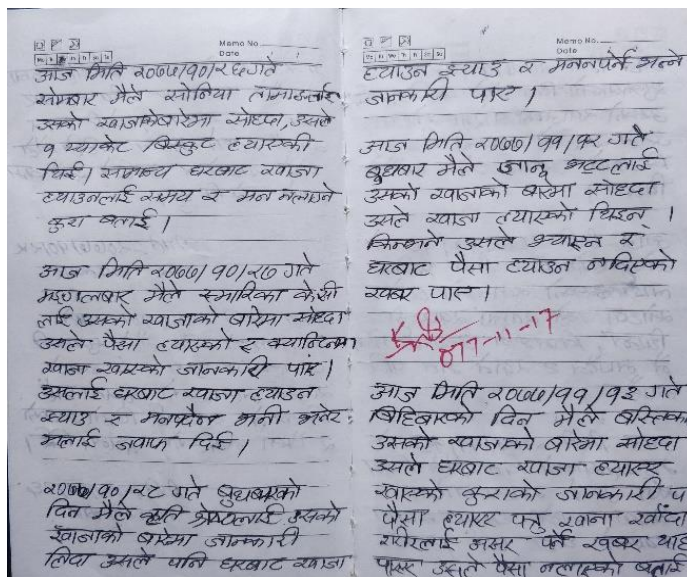 Memo No.
Date
आज मिति २०७७/१०/२६ गते
सोमबार मैले सोनिया तामाङलाई
उसको खाजाकोबारेमा सोध्दा, उसले
१ प्याकेट बिस्कुट ल्याएकी
थिई। सामान्य घरबाट खाजा
ल्याउनलाई समय र मन नलाग्ने
कुरा बताई।
आज मिति २०७७/१०/२७ गते
मङ्गलबार मैले स्मारिका केसी
लाई उसको खाजाको बारेमा सोध्दा
उसले पैसा ल्याएको र क्यान्टिनमा
खाजा खाएको जानकारी पाएँ।
उसलाई घरबाट खाजा ल्याउन
झ्याउ र मनपर्दैन भनी
मलाई जवाफ दिई।
२०७७/१०/२८ गते बुधबारको
दिन मैले श्रेष्ठलाई उसको
खाजाको बारेमा जानकारी
लिदा उसले पनि घरबाट खाजा
Memo No.
Date
ल्याउन झ्याउ र मननपर्ने भन्ने
जानकारी पाए।
आज मिति २०७७/११/१२ गते
बुधबार मैले जानु भट्टलाई
उसको खाजाको बारेमा सोध्दा
उसले खाजा ल्याएको थिइन।
किनभने उसले भ्याइन र
घरबाट पैसा ल्याउन नदिएको
खबर पाए।
077-11-17
आज मिति २०७७/११/१३ गते
बिहिबारको दिन मैले
उसको खाजाको बारेमा सोध्दा
उसले घरबाट खाजा ल्याएर
खाएको कुराको जानकारी
पैसा ल्याएर पत्रु खाना खाँदा
शरीरलाई असर पर्ने खबर
पाएर उसले पैसा नलाएको बताई